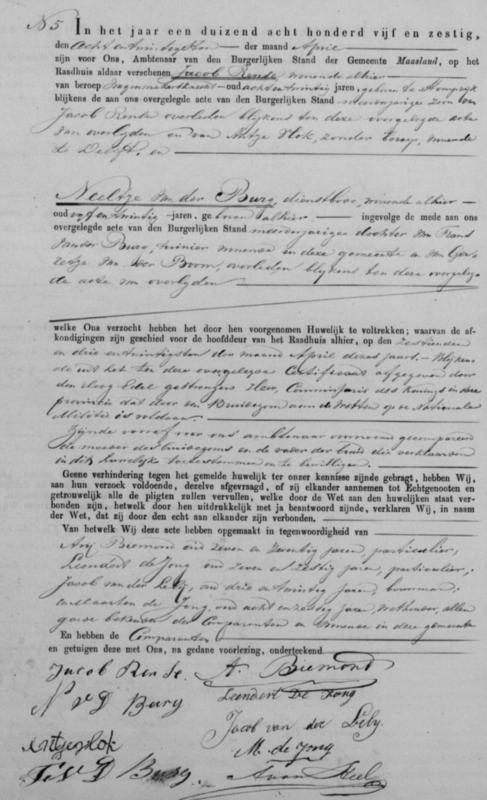 No 5
In het jaar een duizend acht honderd vijf en zestig,
den acht en twintigsten der maand April
zijn voor Ons, Ambtenaar van den Burgerlijken Stand der Gemeente Maasland, op het
Raadhuis aldaar verschenen Jacob Rense wonende alhier
van beroep oud acht en twintig jaren, geboren te
blijkens de aan ons overgelegde acte van den Burgerlijken Stand meerderjarige zoon van
Jacob Rense overleden blijkens ten deze overgelegde acte
van overlyden en van Antje Slok, zonder beroep, wonende
te Delft, en
Neeltje van der Burg, dienstbode, wonende alhier
oud vijf en twintig jaren, geboren alhier ingevolge de mede aan ons
overgelegde acte van den Burgerlijken Stand meerderjarige dochter van Frans
van der Burg, wonende in deze gemeente en van
van der Boom, overleden blijkens ten deze overgeleg
de acte van overlyden
welke Ons verzocht hebben het door hen voorgenomen Huwelijk te voltrekken; waarvan de af-
kondigingen zijn geschied voor de hoofddeur van het Raadhuis alhier, op den zestienden
en drie en twintigsten der maand April dezes jaars. Blijkens
de uit het ten deze overgelegde Certificaat afgegeven door
den Hoog Edel gestrengen Heer, Commissaris des Konings in deze
provintie dat door den Bruidegom aan de Wetten op de Nationale
Militie is voldaan.
Zijnde voorts voor ons ambtenaar voornoemd gecompareerd
de moeder des bruidegoms en de vader der bruid die verklaarden
in dit huwelijk toetestemmen en te bewilligen.
Geene verhindering tegen het gemelde huwelijk ter onzer kennisse zijnde gebragt, hebben Wij,
aan hun verzoek voldoende, dezelve afgevraagd, of zij elkander aannemen tot Echtgenooten en
getrouwelijk alle de pligten zullen vervullen, welke door de Wet aan den huwelijken staat ver-
bonden zijn, hetwelk door hen uitdrukkelijk met ja beantwoord zijnde, verklaren Wij, in naam
der Wet, dat zij door den echt aan elkander zijn verbonden.
Van hetwelk Wij deze acte hebben opgemaakt in tegenwoordigheid van
Ary Biemond oud zeven en zeventig jaren, particulier,
Leendert de Jong oud zeven en zestig jaren, particulier,
Jacob van der Lely, oud drie en twintig jaren, bouwman,
en Maarten de Jong, oud acht en zestig jaren, wethouder, allen
goede bekenden der Comparanten en wonende in deze gemeente
En hebben de Comparanten
en getuigen deze met Ons, na gedane voorlezing, onderteekend.
Jacob Rense. A. Biemond
N v D Burg Leendert De Jong
Jacob van der Lely.
Antje slok M. de Jong
F. V D Burg.